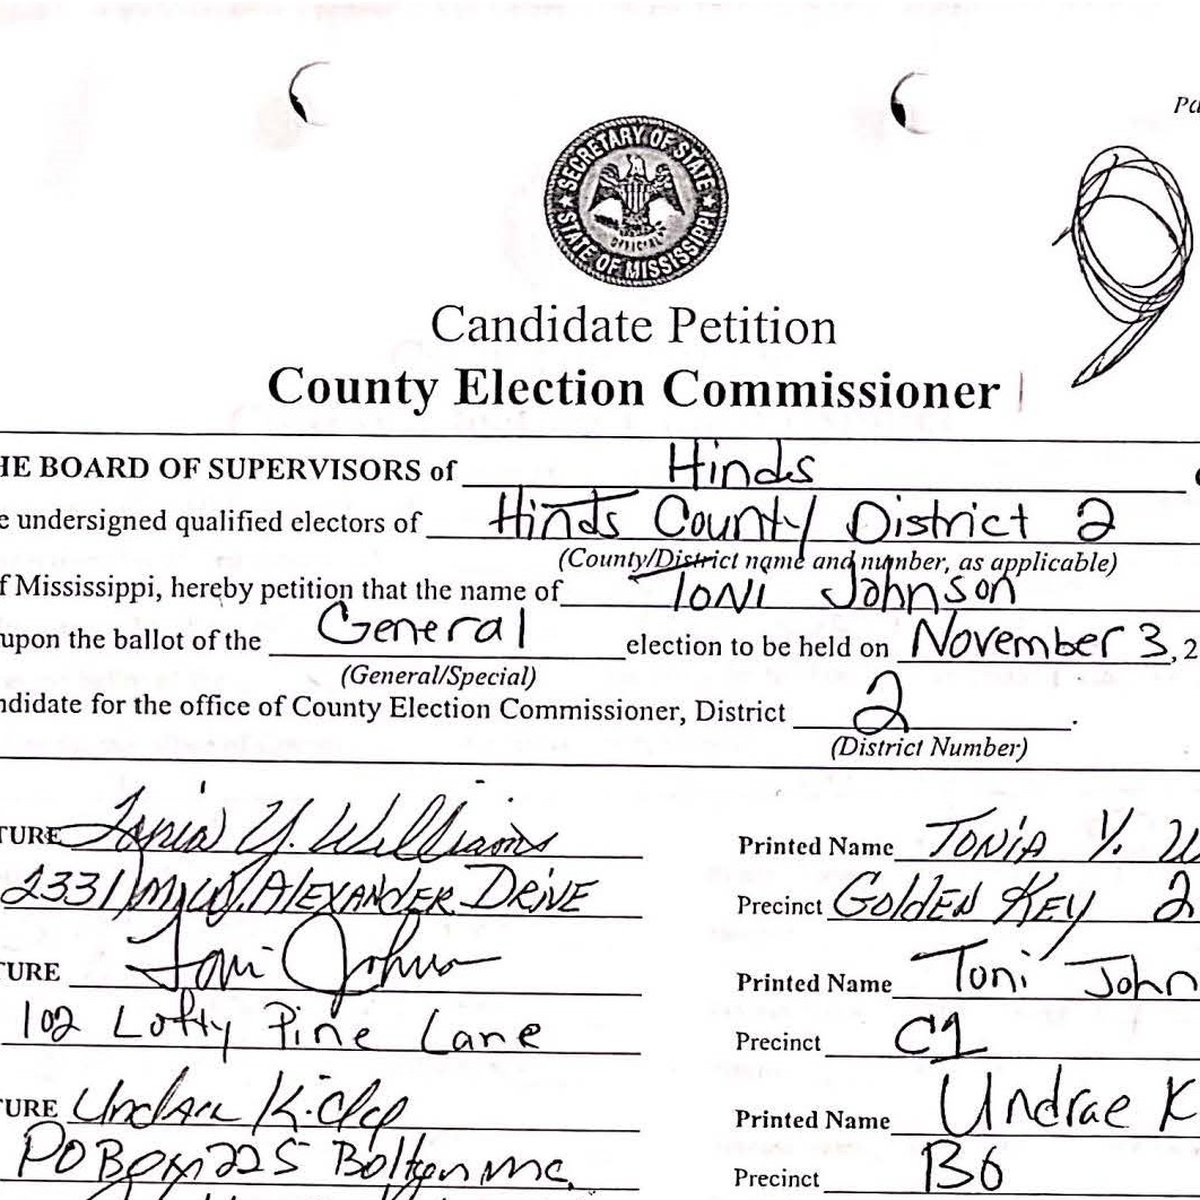 Pa
SECRETARY OF STATE
OFFICIAL
STATE OF MISSISSIPPI
9
Candidate Petition
County Election Commissioner
HE BOARD OF SUPERVISORS of Hinds
e undersigned qualified electors of Hinds County District 2
(County/District name and number, as applicable)
f Mississippi, hereby petition that the name of Toni Johnson
upon the ballot of the General election to be held on November 3, 2
(General/Special)
ndidate for the office of County Election Commissioner, District 2.
(District Number)
TURE Tonia Y. Williams Printed Name Tonia Y. W
2331 M.W. Alexander Drive Precinct Golden Key 2
TURE Toni Johnson Printed Name Toni John
102 Lofty Pine Lane Precinct C1
TURE Undrae K. Printed Name Undrae K
PO Box 225 Bolton ms. Precinct B6